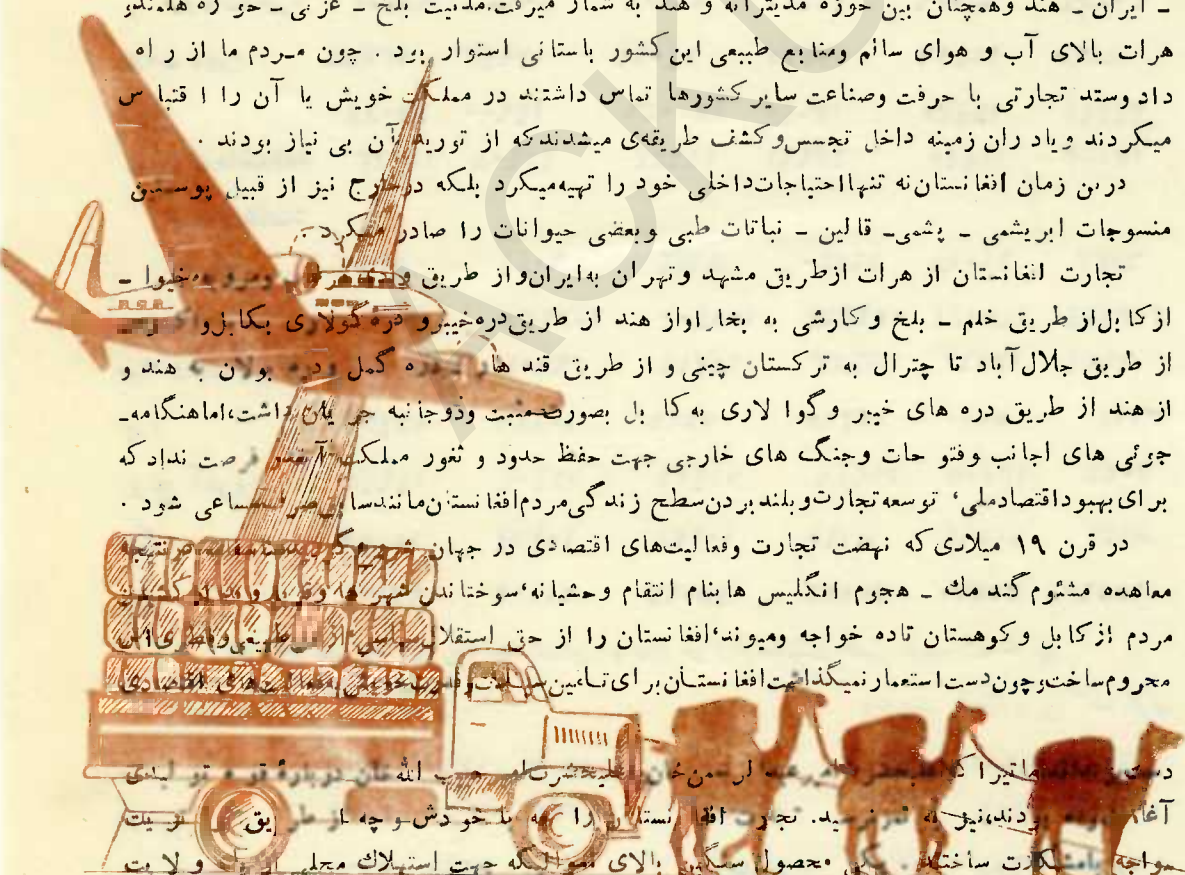 ـ ایران ـ هند وهمچنان بین حوزه مدیترانه و هند به شمار میرفت.مدنیت بلخ ـ غزنی ـ حوزه هلمند،و
هرات بالای آب و هوای سالم ومنابع طبیعی این کشور باستانی استوار بود . چون مردم ما از راه
داد وستد تجارتی با حرفت وصناعت سایر کشورها تماس داشتند در مملکت خویش یا آن را اقتباس
میکردند ویاد ران زمینه داخل تجسس وکشف طریقه‌ی میشدند که از تورید آن بی نیاز بودند .
درین زمان افغانستان نه تنها احتیاجات داخلی خود را تهیه میکرد بلکه در خارج نیز از قبیل پوستین
منسوجات ابریشمی ـ پشمی ـ قالین ـ نباتات طبی وبعضی حیوانات را صادر میکرد .
تجارت افغانستان از هرات ازطریق مشهد وتهران به ایران واز طریق ومرو به خیوا ـ
از کابل از طریق خلم ـ بلخ وکارشی به بخارا واز هند از طریق دره خیبر و دره گولاری بکابل و
از طریق جلال آباد تا چترال به ترکستان چینی و از طریق قند هار ـ دره گمل ودره بولان به هند و
از هند از طریق دره های خیبر وگوا لاری به کابل بصورت مثبت وذوجانبه جریان داشت،اما هنگامه‌ـ
جوئی های اجانب وفتو حات وجنگ های خارجی جهت حفظ حدود و ثغور مملکت آنقدر فرصت نداد که
برای بهبود اقتصاد ملی، توسعه تجارت و بلند بردن سطح زندگی مردم افغانستان مانند سابق صرف مساعی شود .
در قرن ۱۹ میلادی که نهضت تجارت وفعالیت‌های اقتصادی در جهان در نتیجه
معاهده مشئوم گندمك ـ هجوم انگلیس ها بنام انتقام وحشیانه،سوختاندن شهر ها و کشتن
مردم از کابل وکوهستان تاده خواجه ومیوند،افغانستان را از حق استقلال سیاسی طبیعی وفطری اش
محروم ساخت،وچون دست استعمار نمیگذاشت افغانستان برای تأمین اقتصادی
دست الله خان در بارۀ تولیدی
آغاز بودند،نیز به ثمر نرسید. تجارت افغانستان را خودش و چه از طریق
مواجه بامشکلات ساختند . محصول سنگین بالای جهت استهلاك محلی ولایت